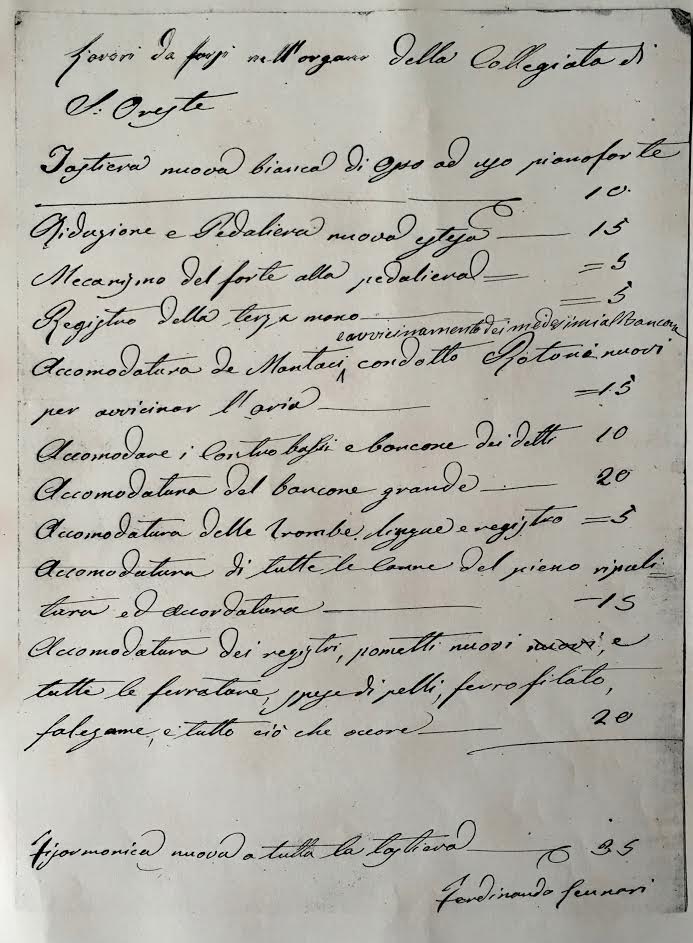 Lavori da farsi nell'organo della Collegiata di
S: Oreste
Tastiera nuova bianca di osso ad uso pianoforte
10
Riduzione e Pedaliera nuova estesa 15
Mecanismo del forte alla pedaliera = 5
Registro della terza mano = 5
e avvicinamento dei medesimi al Bancone
Accomodatura de Mantaci condotto nuovi
per avvicinar l'aria = 15
Accomodare i Contro bassi e bancone dei detti 10
Accomodatura del bancone grande 20
Accomodatura delle Trombe, lingue e registro = 5
Accomodatura di tutte le Canne del pieno ripuli-
tura ed accordatura 15
Accomodatura dei registri, pometti nuovi nuovi, e
tutte le ferrature, spese di pelli, ferro filato,
falegame, e tutto ciò che occore 20
Fisarmonica nuova a tutta la tastiera 35
Ferdinando Gennari